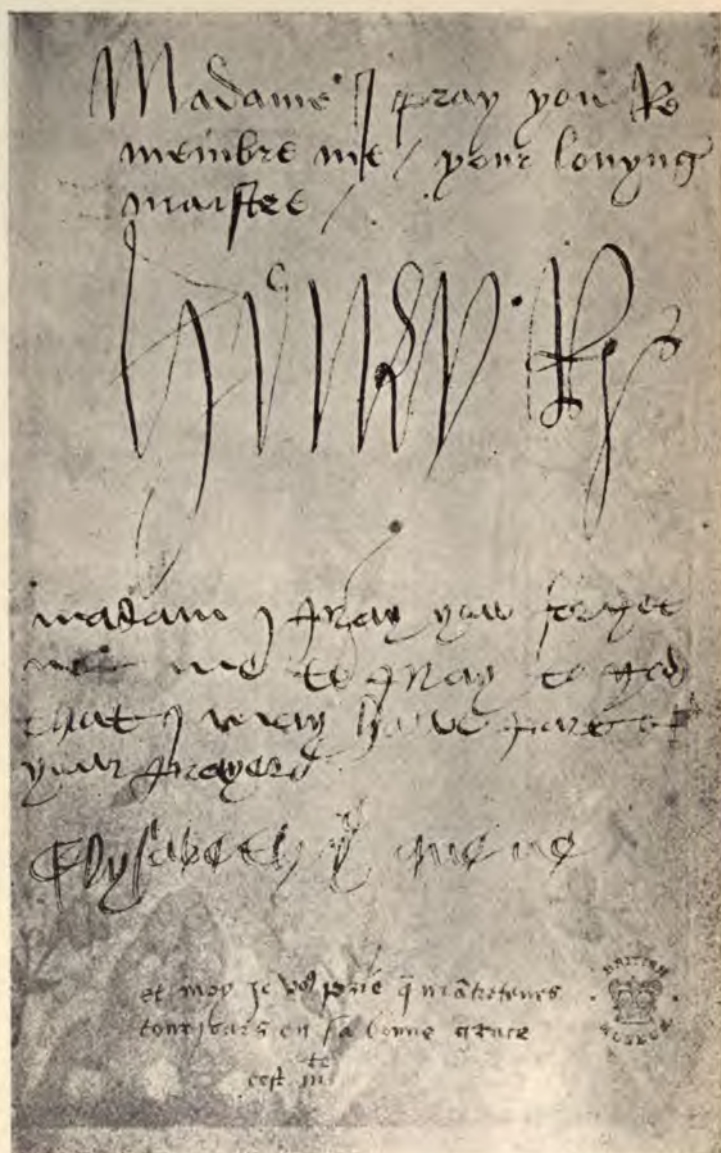 Madame I pray you Re
membre me / your lovyng
maistre /
Henry R
madam I pray you forget
not me to pray to god
that I may have part of
your prayers
Elysabeth ye quene
et moy je vos prie q̃ m'ãtretenes
tourjours en sa bonne grace
cest
BRITISH
MUSEUM